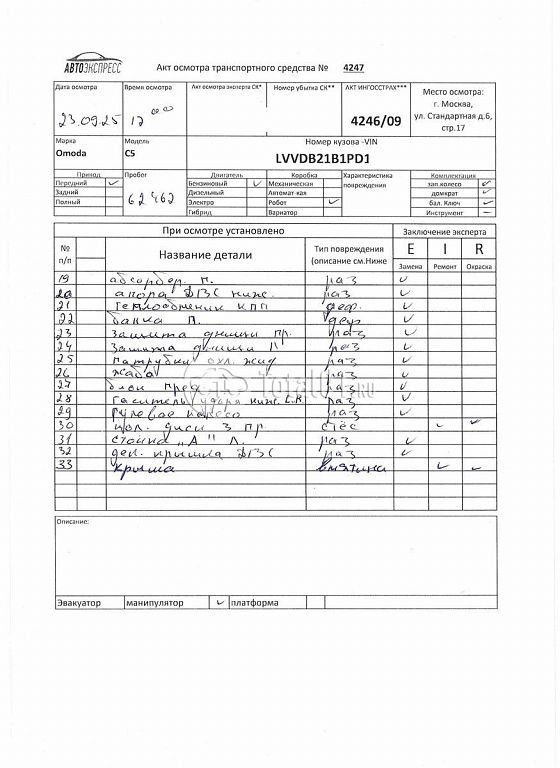 АВТОЭКСПРЕСС
Акт осмотра транспортного средства № 4247
Дата осмотра Время осмотра Акт осмотра эксперта СК* Номер убытка СК** АКТ ИНГОССТРАХ*** Место осмотра:
23.09.25 17 00 4246/09 г. Москва,
ул. Стандартная д.6,
стр.17
Марка Модель Номер кузова -VIN
Omoda C5 LVVDB21B1PD1
Привод Пробег Двигатель Коробка Характеристика повреждения Комплектация
Передний Бензиновый Механическая зап.колесо
Задний 62462 Дизельный Автомат-кая домкрат
Полный Электро Робот бал. Ключ
Гибрид Вариатор Инструмент –
При осмотре установлено Заключение эксперта
№ п/п Название детали Тип повреждения (описание см.Ниже E I R
Замена Ремонт Окраска
19 абсорбер. п. раз
20 опора ДВС ниж. раз
21 Теплообменик КПП деф.
22 балка П.
23 защита днища пр. раз
24 Защита днища Л раз
25 Патрубки охл. жид раз
26 Жабо раз
27 блок пред раз
28 Гаситель удара ниж. L.R. раз
29 Рулевое колесо раз
30 кол. диск З пр.
31 стойка "А" Л. раз
32 дек. крышка ДВС раз
33 крыша вмятина
TotalCar.RU
Описание:
Эвакуатор манипулятор платформа